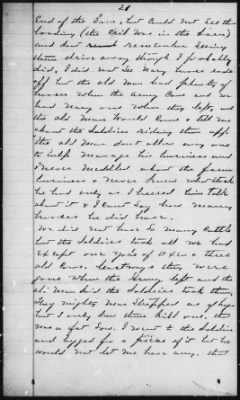 20
End of the Lane, but could not see the
loading (the Crib was in the Lane)
and dont remember seeing
them drive away though I probably
did, I did not see Mary horse rode
off but the old Man had plenty of
horses when the Army came and we
had Many one when they left, and
the old Man would come & tell me
about the Soldiers riding them off.
The old Man dont allow any one
to help manage his business and
I never meddled about the farm
business & never knew what stock
he had only as I heard him talk
about it & I cant say how many
horses he did have.
We did not have so Many Cattle
but the Soldiers took all we had
Except our yoke of Oxen & three
old Cows. they were
gone when the Army left and the
old Man said the Soldiers took them,
They mighty near stripped us of hogs
but I only saw them kill one, this
was a fat Sow. I went to the Soldiers
and begged for a piece of it but he
would not let me have any, the